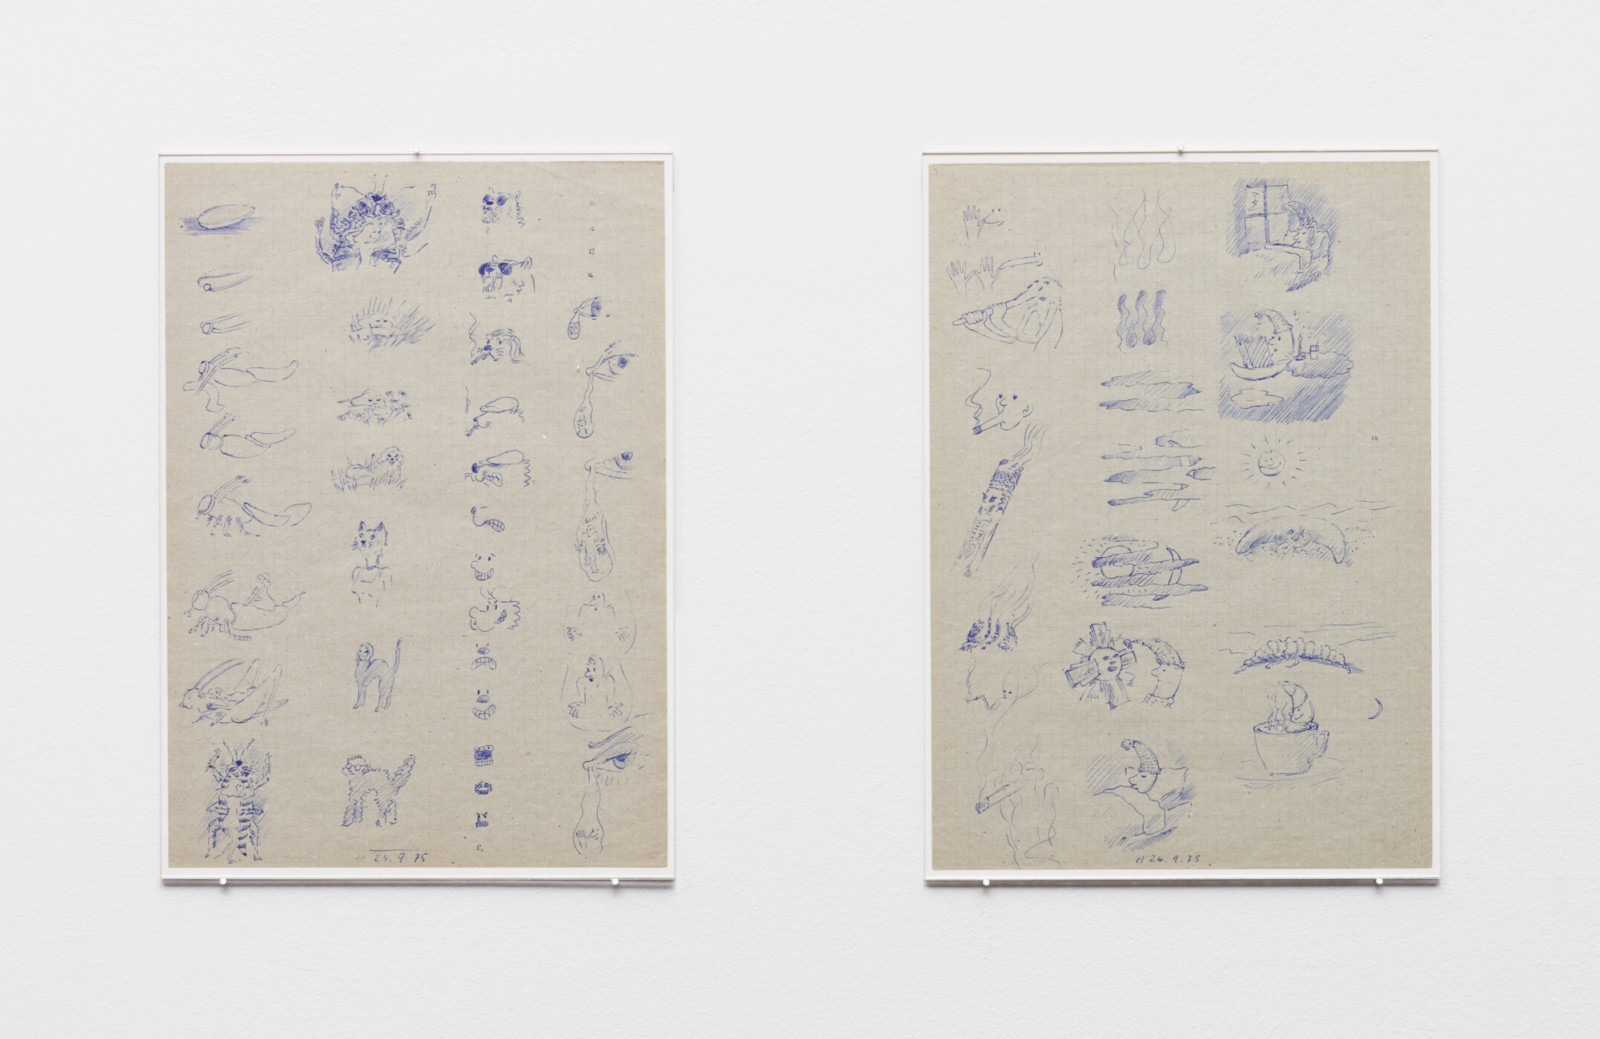 25.9.75
26.9.75